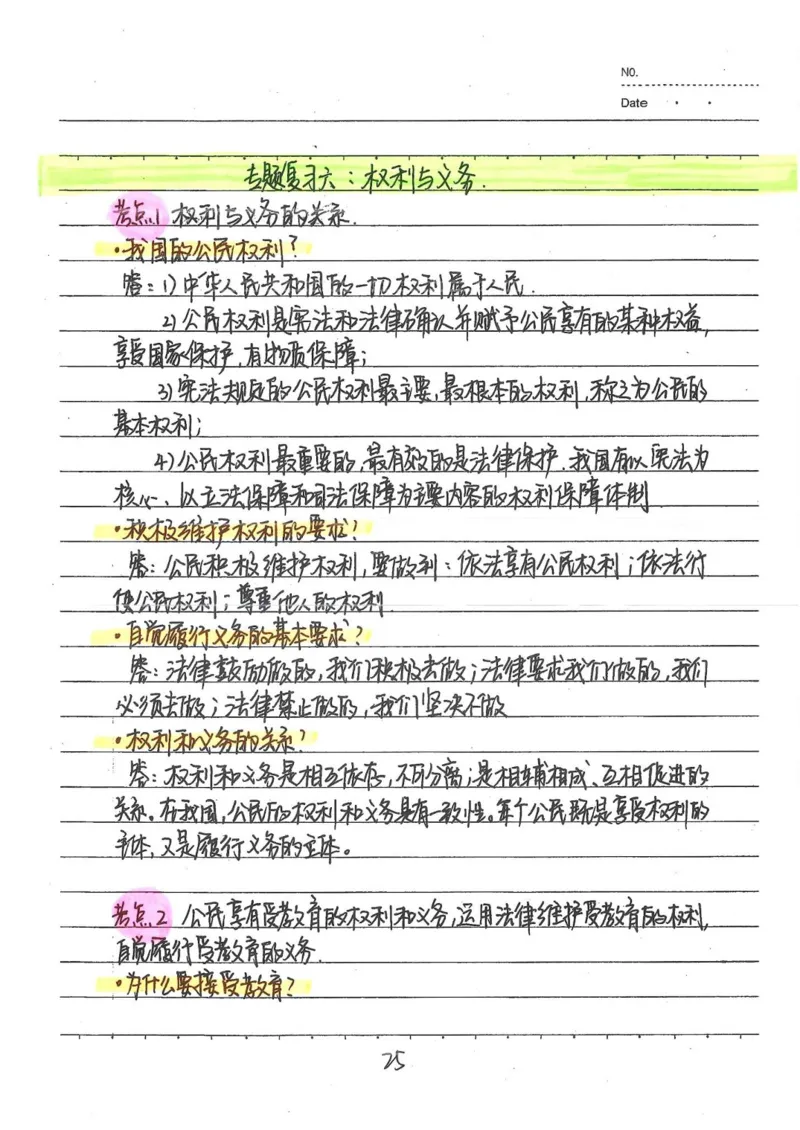 NO.
Date
专题复习六：权利与义务.
考点1 权利与义务的关系.
·我国的公民权利？
答：1)中华人民共和国的一切权利属于人民.
2)公民权利是宪法和法律确认并赋予公民享有的某种权益,
享受国家保护,有物质保障；
3)宪法规定的公民权利最主要,最根本的权利,称之为公民的
基本权利；
4)公民权利最重要的,最有效的是法律保护.我国有以宪法为
核心、以立法保障和司法保障为主要内容的权利保障体制
·积极维护权利的要求？
答：公民积极维护权利,要做到：依法享有公民权利；依法行
使公民权利；尊重他人的权利.
·自觉履行义务的基本要求？
答：法律鼓励做的,我们积极去做；法律要求我们做的,我们
必须去做；法律禁止做的,我们坚决不做
·权利和义务的关系？
答：权利和义务是相互依存,不可分离；是相辅相成、互相促进的
关系。在我国,公民的权利和义务具有一致性。每个公民既是享受权利的
主体,又是履行义务的主体。
考点2 公民享有受教育的权利和义务,运用法律维护受教育的权利,
自觉履行受教育的义务.
·为什么要接受教育？
25